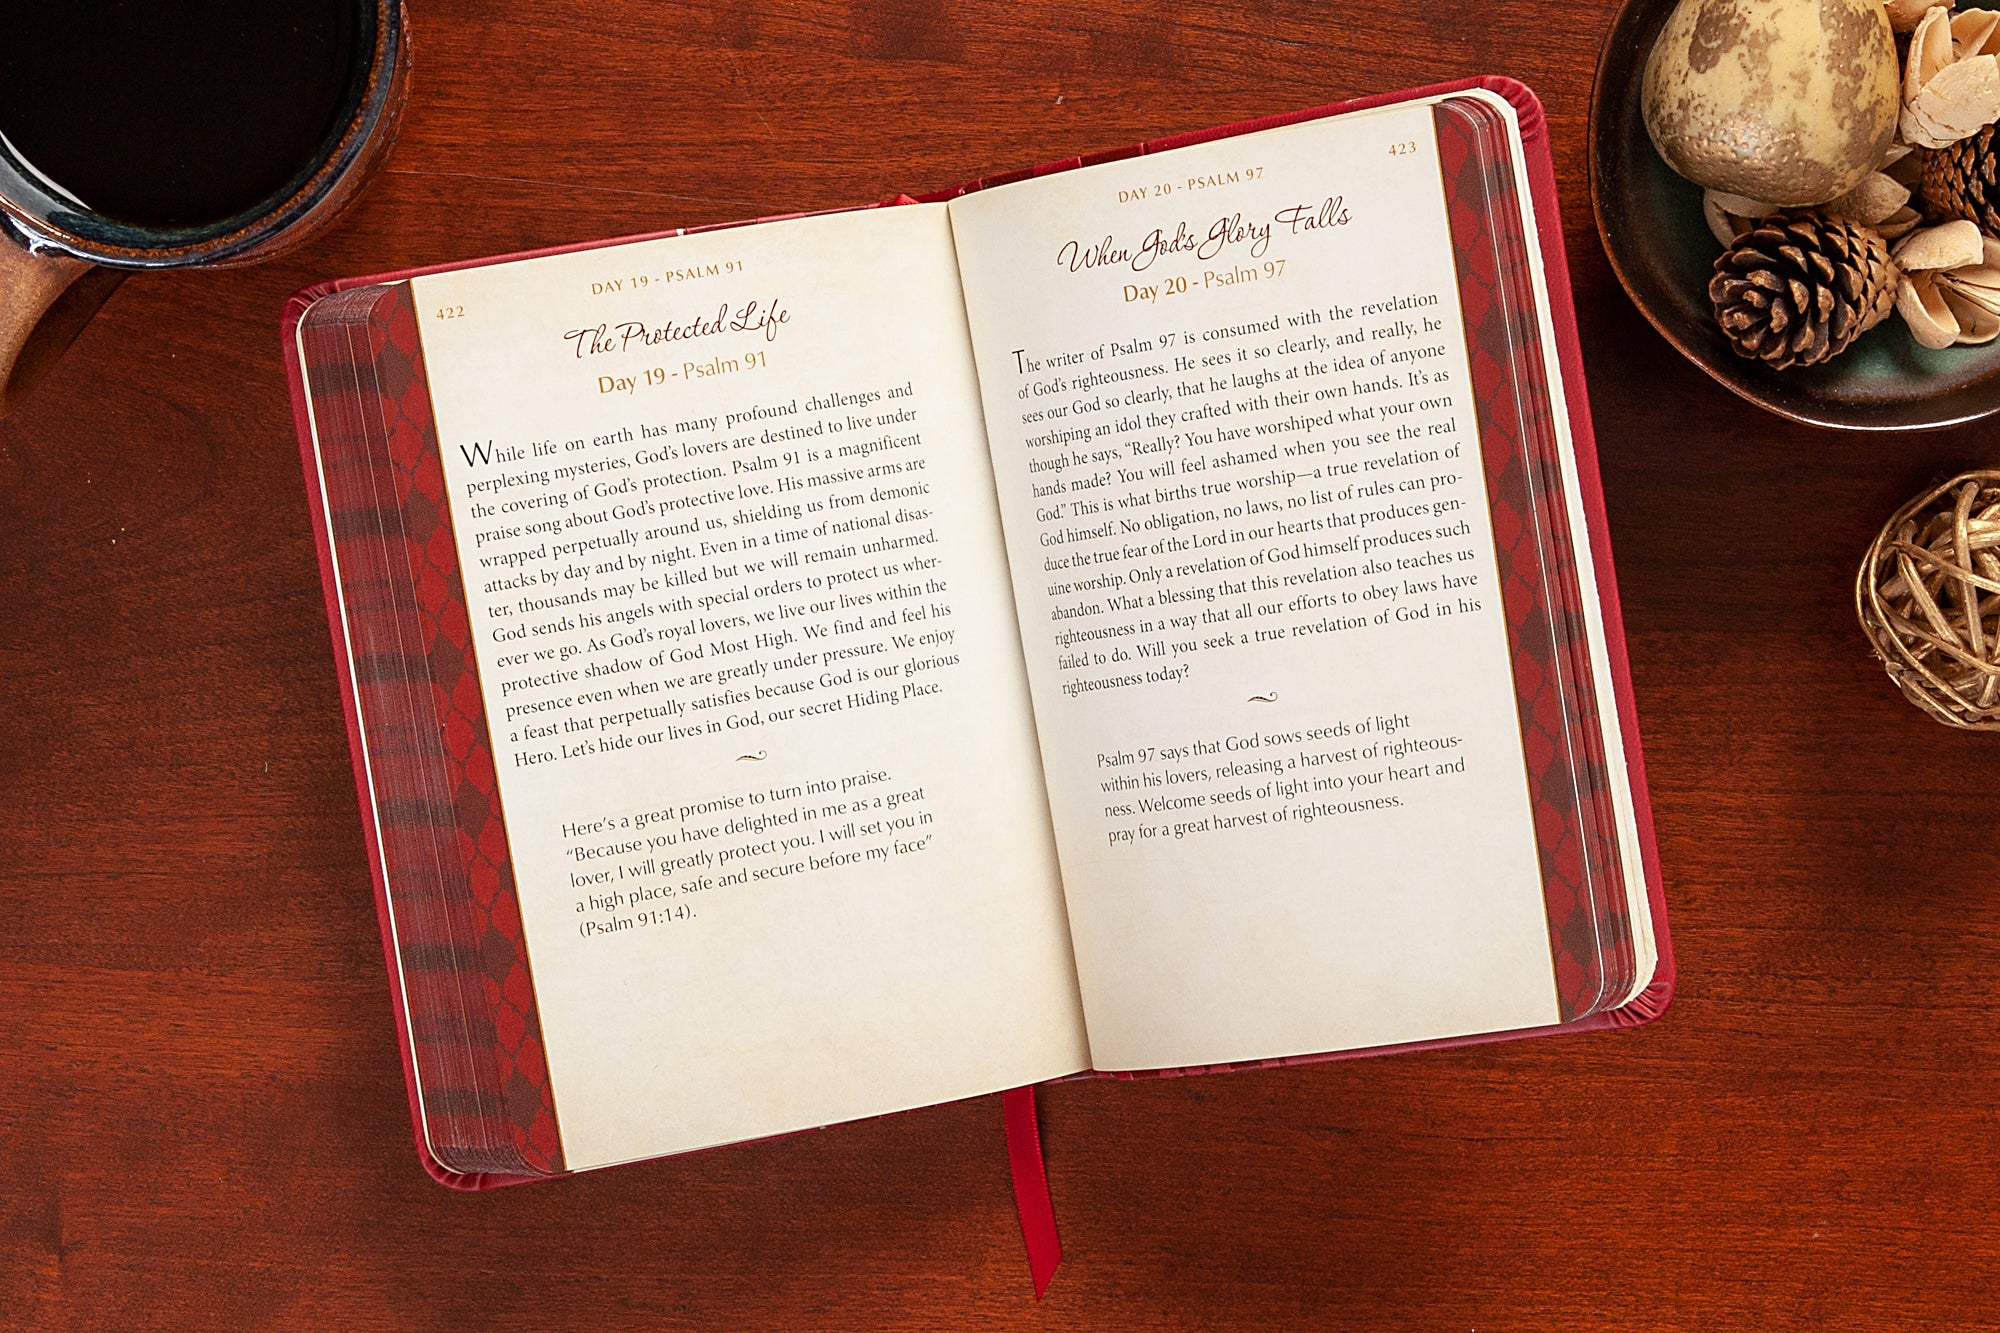 DAY 19 - PSALM 91
422
The Protected Life
Day 19 - Psalm 91
While life on earth has many profound challenges and
perplexing mysteries, God's lovers are destined to live under
the covering of God's protection. Psalm 91 is a magnificent
praise song about God's protective love. His massive arms are
wrapped perpetually around us, shielding us from demonic
attacks by day and by night. Even in a time of national disas-
ter, thousands may be killed but we will remain unharmed.
God sends his angels with special orders to protect us wher-
ever we go. As God's royal lovers, we live our lives within the
protective shadow of God Most High. We find and feel his
presence even when we are greatly under pressure. We enjoy
a feast that perpetually satisfies because God is our glorious
Hero. Let's hide our lives in God, our secret Hiding Place.
Here's a great promise to turn into praise.
“Because you have delighted in me as a great
lover, I will greatly protect you. I will set you in
a high place, safe and secure before my face”
(Psalm 91:14).
423
DAY 20 - PSALM 97
When God's Glory Falls
Day 20 - Psalm 97
The writer of Psalm 97 is consumed with the revelation
of God's righteousness. He sees it so clearly, and really, he
sees our God so clearly, that he laughs at the idea of anyone
worshiping an idol they crafted with their own hands. It's as
though he says, “Really? You have worshiped what your own
hands made? You will feel ashamed when you see the real
God.” This is what births true worship—a true revelation of
God himself. No obligation, no laws, no list of rules can pro-
duce the true fear of the Lord in our hearts that produces gen-
uine worship. Only a revelation of God himself produces such
abandon. What a blessing that this revelation also teaches us
righteousness in a way that all our efforts to obey laws have
failed to do. Will you seek a true revelation of God in his
righteousness today?
Psalm 97 says that God sows seeds of light
within his lovers, releasing a harvest of righteous-
ness. Welcome seeds of light into your heart and
pray for a great harvest of righteousness.